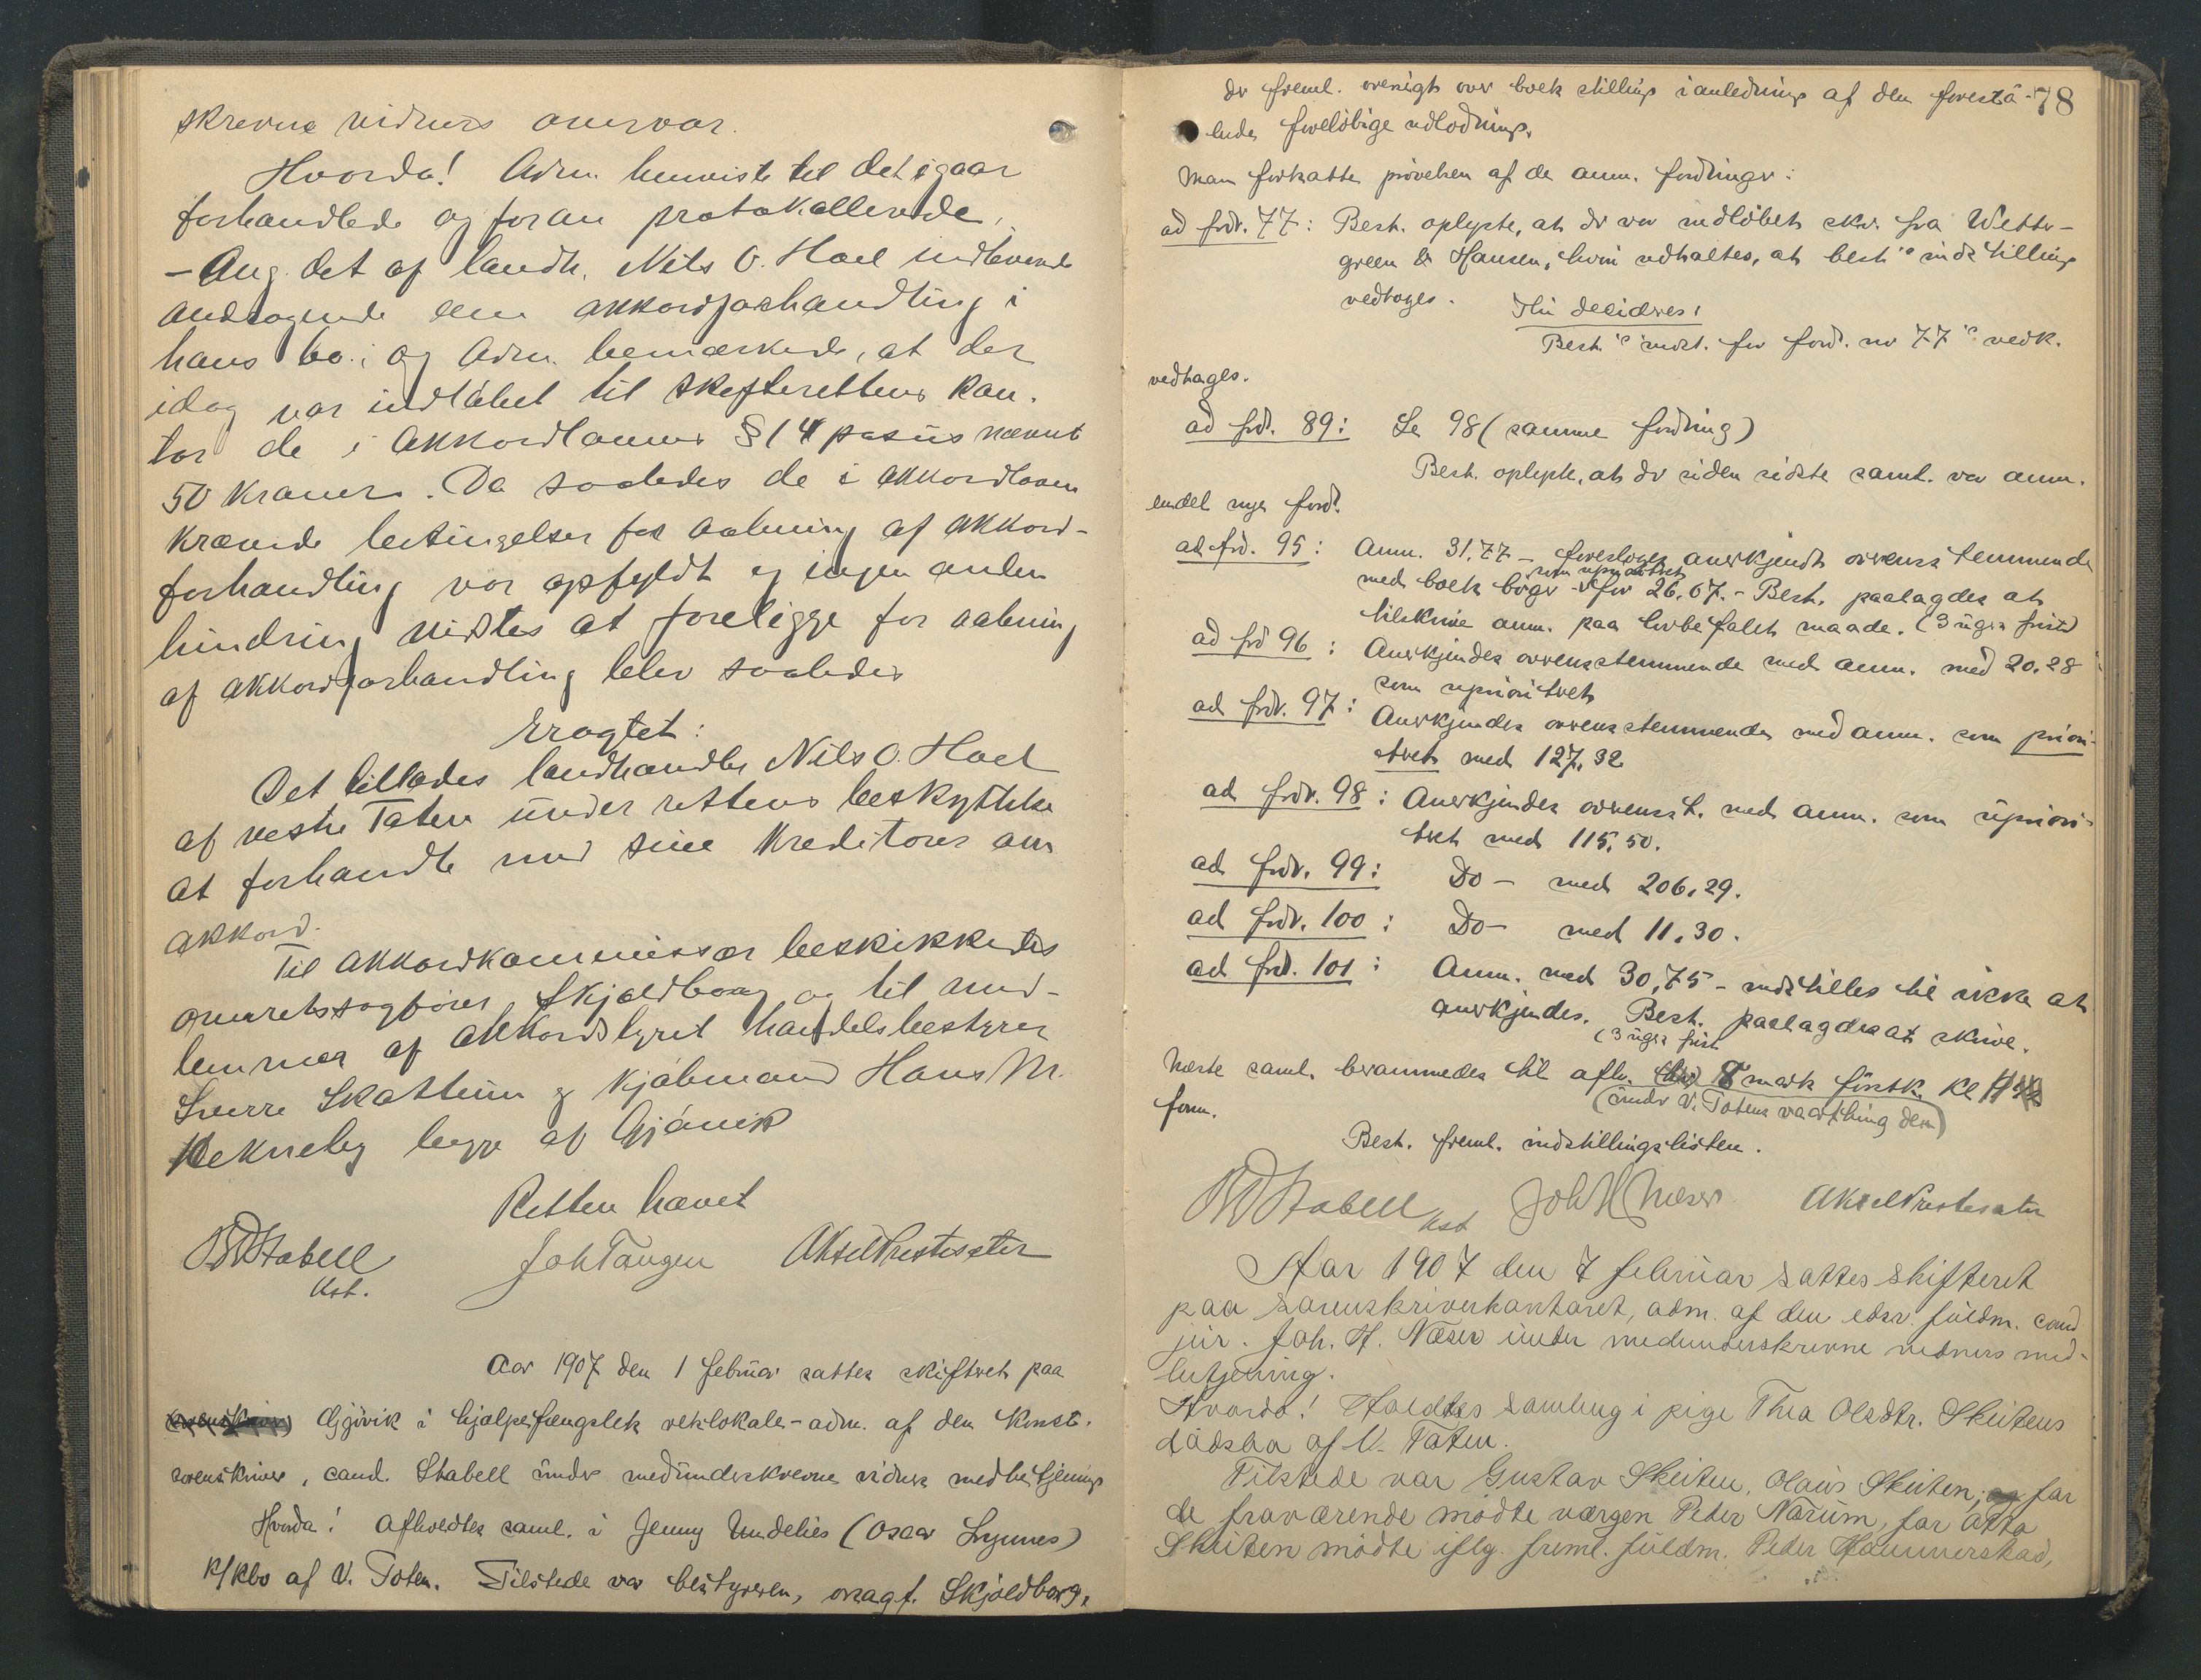 skrevne vidners ansvar.
Hvorda! Adm. henviste til det igaar
forhandlede og foran protokollerede,
– Ang. det af landh. Nils O. Hoel indleverede
andragende om akkordforhandling i
hans bo; og Adm. bemærkede, at der
idag var indløbet til skifterettens kon-
tor de i Akkordlovens § 14 passus nævnt
50 kroner. Da saaledes de i akkordloven
krævede betingelser for aabning af akkord-
forhandling var opfyldt og ingen anden
hindring vidstes at foreligge for aabning
af akkordforhandling blev saaledes
Eragtet:
Det tillades landhandler Nils O. Hoel
af vestre Toten under rettens beskyttelse
at forhandle med sine kreditorer om
akkord.
Til akkordkommissær beskikkedes
overretssagfører Skjoldborg og til med-
lemmer af akkordstyret handelsbestyrer
Sverre Skattum og kjøbmand Hans M.
begge af Gjøvik
Retten hævet
Stabell Joh Tangen Aksel Prestesæter
kst.
Aar 1907 den 1 februar sattes skifteret paa
Gjøvik i hjælpefængslets retslokale – adm. af den konst.
sorenskriver, cand. Stabell under medunderskrevne vidners medbetjening
Hvorda! Afholdtes saml. i Jenny Undelies (Oscar Lynnes)
k/kbo af V. Toten. Tilstede var bestyreren, orsagf. Skjoldborg,
78
der freml. oversigt over boets stilling i anledning af den forestå-
ende foreløbige udlodning.
Man fortsatte prøvelsen af de anm. fordringer:
ad fodr. 77: Best. oplyste, at der var indløbet skr. fra Wetter-
green & Hansen, hvori udtaltes, at best's indstilling
vedtoges. Thi decideres:
Best's indst. for ford. no 77's vedk.
vedtages.
ad fod. 89: Se 98 (samme fordring)
Best. oplyste, at der siden sidste saml. var anm.
endel nye ford.
ad fod. 95: Anm. 31.77 – foresloges anerkjendt overensstemmende
som uprioritert
med boets bøger for 26.07. – Best. paalagdes at
tilskrive anm. paa lovbefalet maade. (3 ugers frist)
ad fod 96: Anerkjendes overensstemmende med anm. med 20.28
som uprioritert
ad fodr. 97: Anerkjendes overensstemmende med anm. som priori-
tert med 127,32
ad fodr. 98: Anerkjendes overensst. med anm. som upriori-
tert med 115,50.
ad fodr. 99: Do – med 206,29.
ad fodr. 100: Do – med 11.30.
ad fod. 101: Anm. med 30,75 – indstilles til ikke at
anerkjendes. Best. paalagdes at skrive.
(3 ugers frist
Næste saml. berammedes til afh. 8 marts førstk. kl
(under V. Totens vaarthing dem)
form.
Best. freml. indstillingslisten.
Stabell kst Joh H Næser Aksel Prestesæter
Aar 1907 den 7 februar sattes skifteret
paa sorenskriverkontoret, adm. af den edsv. fuldm. cand
jur. Joh. H. Næser under medunderskrevne vidners med-
betjening.
Hvorda! Holdtes samling i pige Thea Olsdtr. Skutens
dødsbo af V. Toten.
Tilstede var Gustav Skuten, Olaus Skuten; for
de fraværende mødte værgen Peder Narum, for
Skuten mødte iflg. freml. fuldm. Peder Hammerstad,